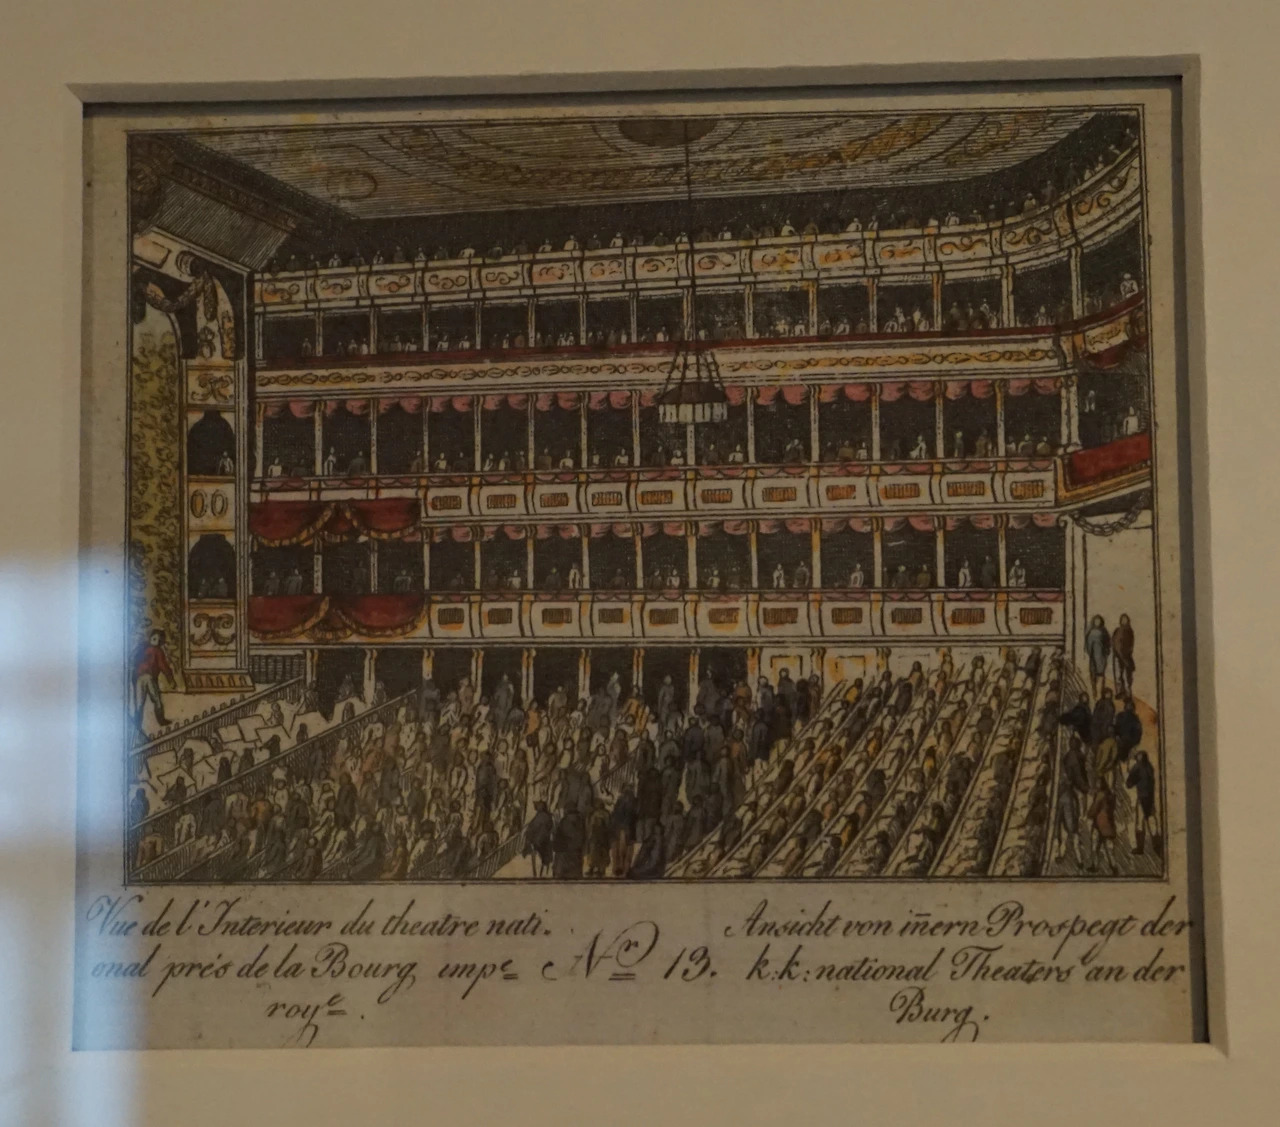 Vue de l'Interieur du theatre nati.
onal prés de la Bourg impͤ
royͤ.
Nr 13.
Ansicht von in̄ern Prospegt der
k:k: national Theaters an der
Burg.